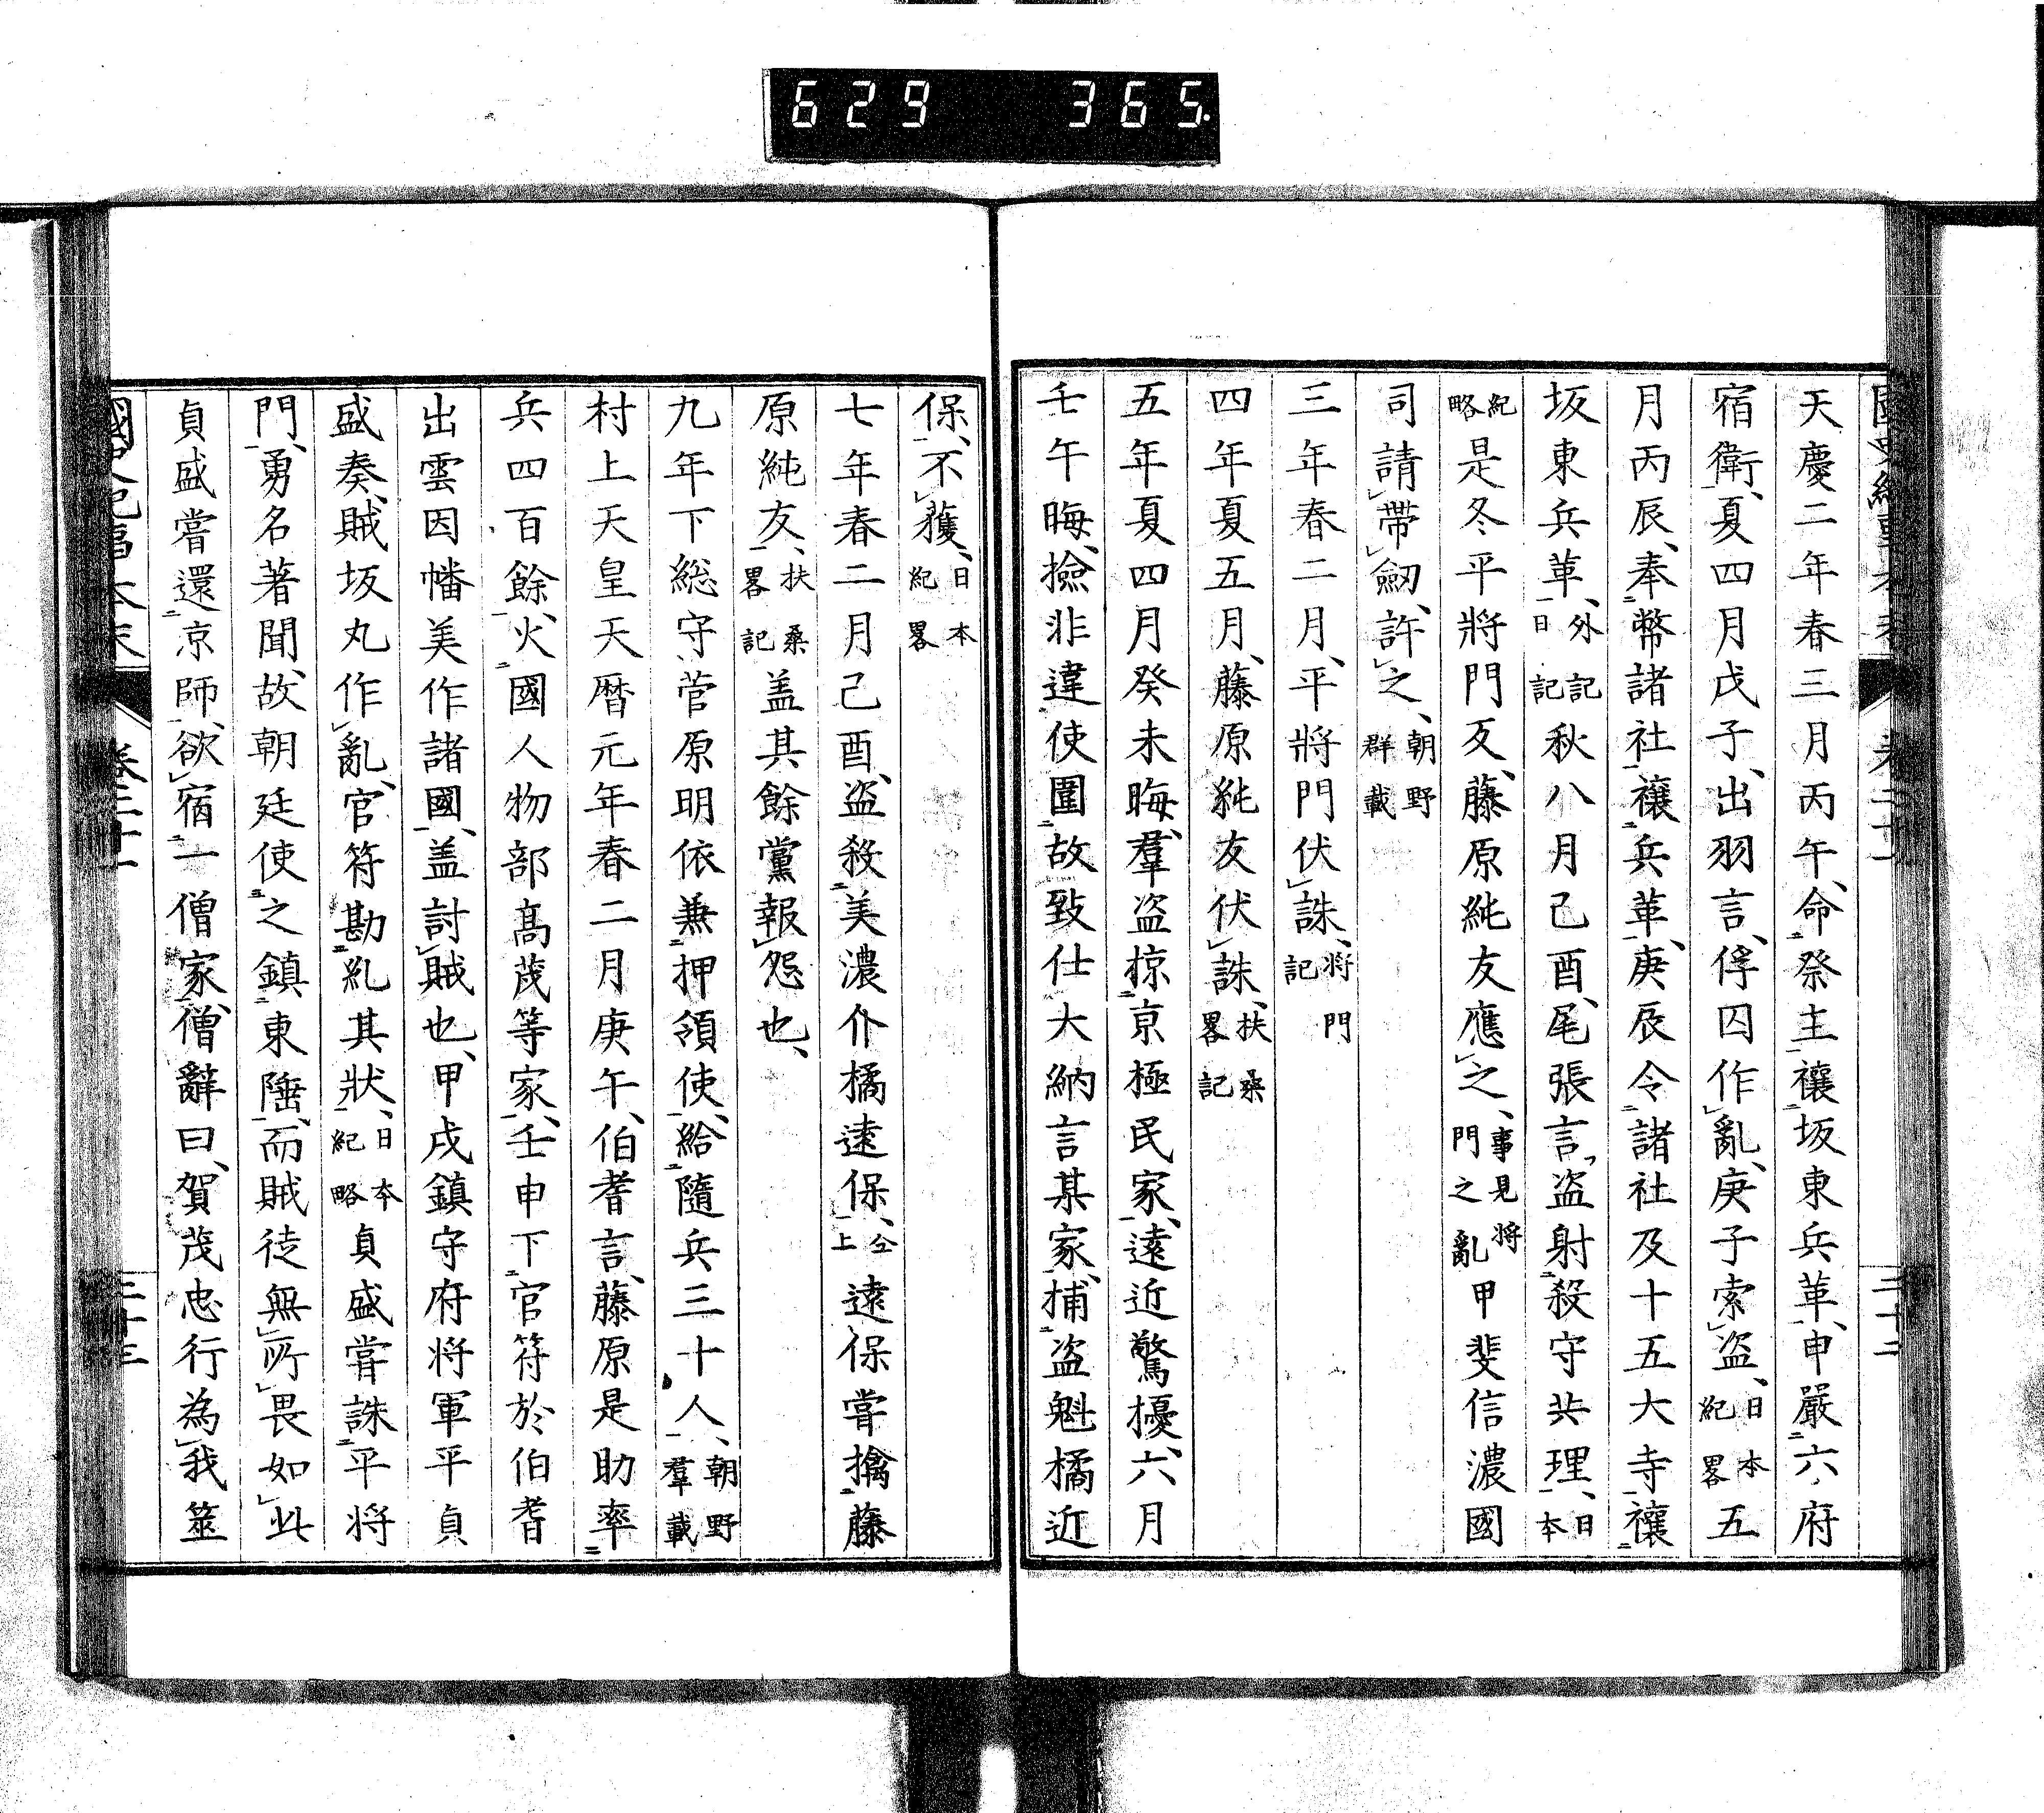 629 365.
國史紀事本末 卷二十一 二十二
天慶二年春三月丙午、命祭主禳坂東兵革、申嚴六府
宿衛、夏四月戊子、出羽言、俘囚作亂、庚子索盗、日本紀畧五
月丙辰、奉幣諸社禳兵革、庚辰令諸社及十五大寺禳
坂東兵革、外記日記秋八月己酉、尾張言、盗射殺守共理、日本
紀略是冬平將門反、藤原純友應之、事見將門之亂甲斐信濃國
司請帶劒、許之、朝野群載
三年春二月、平將門伏誅、将門記
四年夏五月、藤原純友伏誅、扶桑畧記
五年夏四月癸未晦、羣盗掠京極民家、遠近驚擾、六月
壬午晦、撿非違使圍故致仕大納言某家、捕盗魁橘近
保、不獲、日本紀畧
七年春二月己酉、盗殺美濃介橘遠保、仝上遠保嘗擒藤
原純友、扶桑畧記盖其餘黨報怨也、
九年下総守菅原明依兼押領使、給隨兵三十人、朝野羣載
村上天皇天暦元年春二月庚午、伯耆言、藤原是助率
兵四百餘、火國人物部髙茂等家、壬申下官符於伯耆
出雲因幡美作諸國、盖討賊也、甲戌鎮守府将軍平貞
盛奏、賊坂丸作亂、官符勘糺其狀、日本紀略貞盛嘗誅平将
門、勇名著聞、故朝廷使之鎮東陲、而賊徒無所畏如此
貞盛嘗還京師、欲宿一僧家、僧辭曰、賀茂忠行為我筮
國史紀事本末 卷二十一 二十三